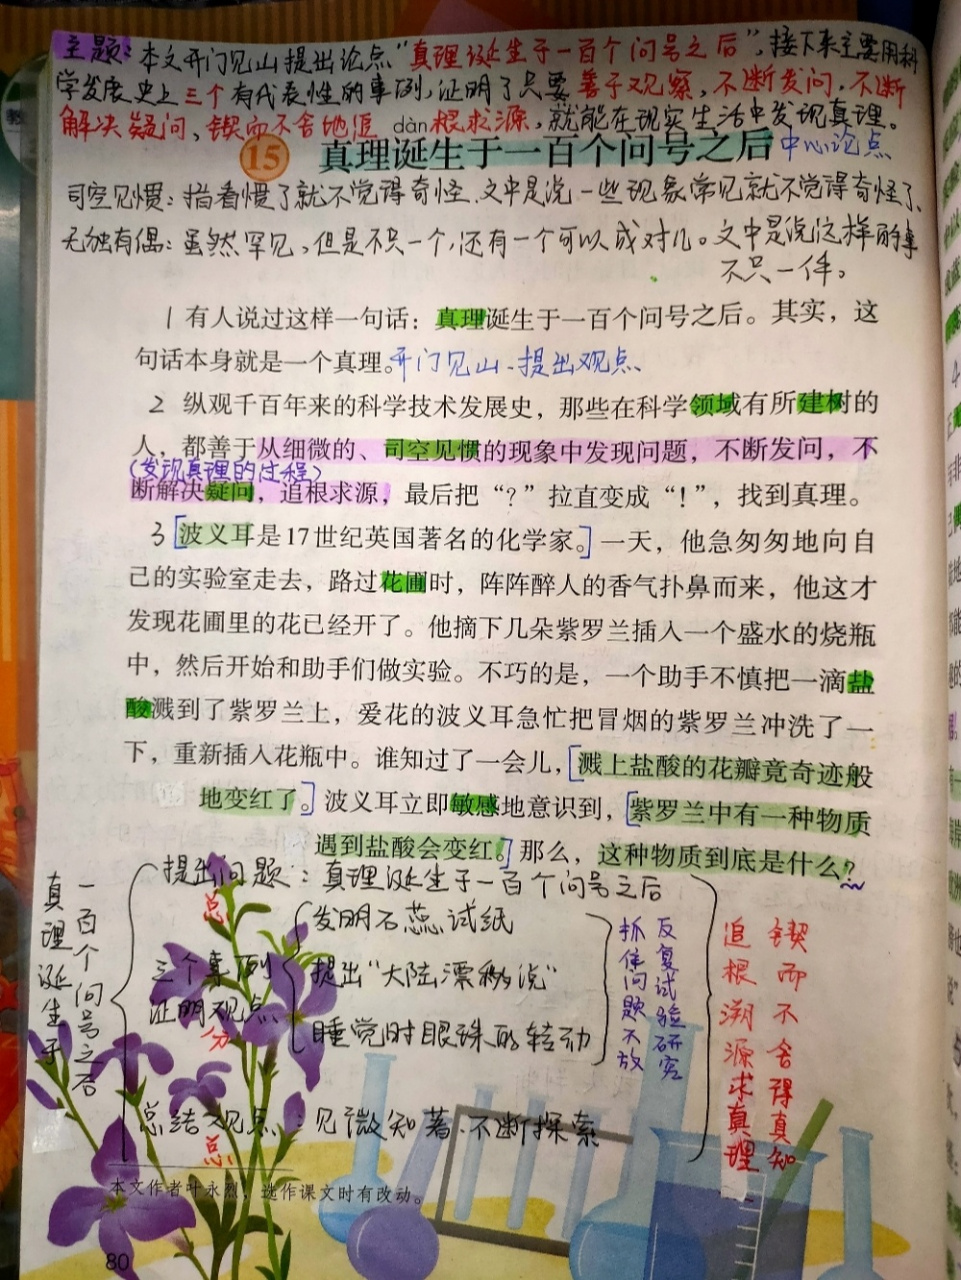 主题：本文开门见山提出论点“真理诞生于一百个问号之后”，接下来主要用科
学发展史上三个有代表性的事例，证明了只要善于观察，不断发问，不断
解决疑问、锲而不舍地追根求源，就能在现实生活中发现真理。
dàn
15 真理诞生于一百个问号之后 中心论点
司空见惯：指看惯了就不觉得奇怪。文中是说一些现象常见就不觉得奇怪了。
无独有偶：虽然罕见，但是不只一个，还有一个可以成对儿。文中是说这样的事
不只一件。
1 有人说过这样一句话：真理诞生于一百个问号之后。其实，这
句话本身就是一个真理。开门见山、提出观点
2 纵观千百年来的科学技术发展史，那些在科学领域有所建树的
人，都善于从细微的、司空见惯的现象中发现问题，不断发问，不
（发现真理的过程）
断解决疑问，追根求源，最后把“？”拉直变成“！”，找到真理。
3 [波义耳是17世纪英国著名的化学家。]一天，他急匆匆地向自
己的实验室走去，路过花圃时，阵阵醉人的香气扑鼻而来，他这才
发现花圃里的花已经开了。他摘下几朵紫罗兰插入一个盛水的烧瓶
中，然后开始和助手们做实验。不巧的是，一个助手不慎把一滴盐
酸溅到了紫罗兰上，爱花的波义耳急忙把冒烟的紫罗兰冲洗了一
下，重新插入花瓶中。谁知过了一会儿，[溅上盐酸的花瓣竟奇迹般
地变红了。]波义耳立即敏感地意识到，[紫罗兰中有一种物质
遇到盐酸会变红。]那么，这种物质到底是什么？
真理诞生于
一百个问号之后
提出问题：真理诞生于一百个问号之后
总
三个事例
证明观点
分
发明石蕊试纸
提出“大陆漂移说”
睡觉时眼珠的转动
抓住问题不放
反复试验研究
总结观点：见微知著、不断探索
总
追根溯源求真理
锲而不舍得真知
本文作者叶永烈，选作课文时有改动。
80